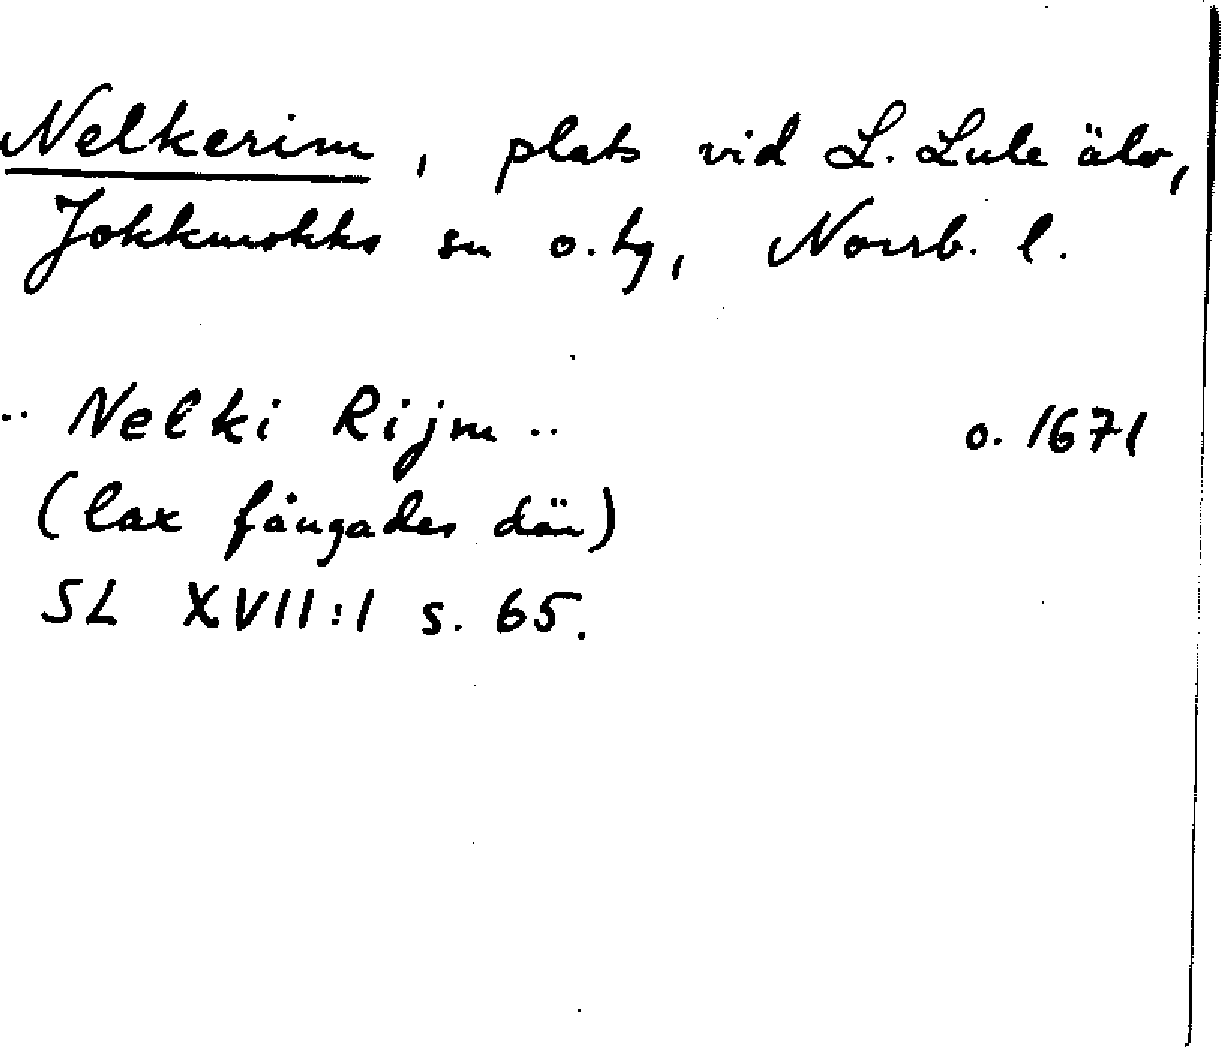 Nelkerim, plats vid L. Lule älv,
Jokkmokks sn o. hg, Norrb. l.
.. Nelki Rijm ..
o. 1671
(lax fångades där)
SL XVII:1 s. 65.